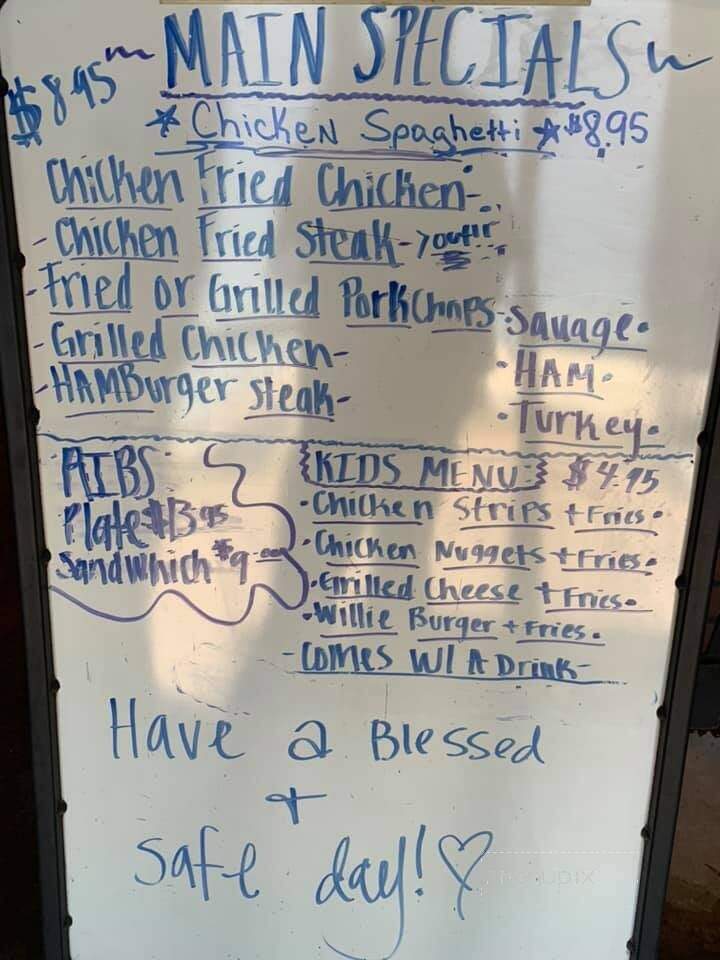 MAIN SPECIALS
$8.95
* Chicken Spaghetti * $8.95
Chicken Fried Chicken-
- Chicken Fried Steak-
- Fried or Grilled PorkChops
- Grilled Chicken-
- HAMBurger Steak-
• Sauage •
• HAM •
• Turkey •
RIBS
Plate $13.95
Sandwhich $9.00
KIDS MENU: $4.95
• Chicken Strips + Fries •
• Chicken Nuggets + Fries •
• Grilled Cheese + Fries •
• Willie Burger + Fries •
- Comes W/ A Drink -
Have a Blessed
+
safe day! ♡